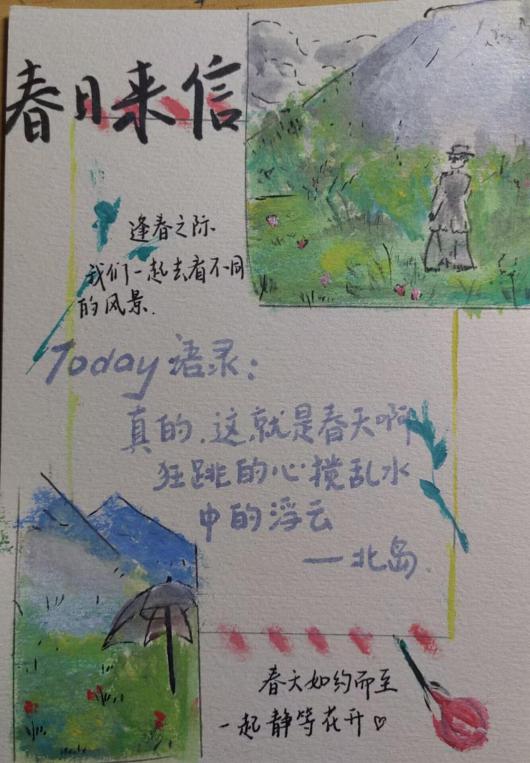 春日来信
逢春之际
我们一起去看不同
的风景.
Today语录:
真的,这就是春天啊
狂跳的心搅乱水
中的浮云
—北岛.
春天如约而至
一起静等花开♡